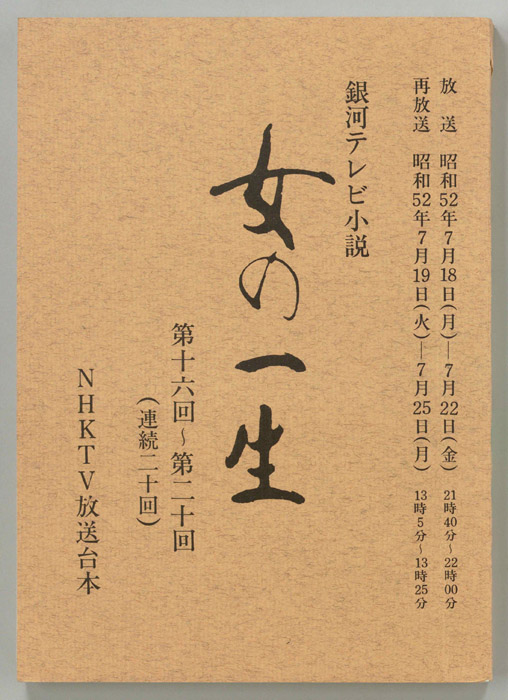 放　送　昭和52年7月18日(月)―7月22日(金)　21時40分～22時00分
再放送　昭和52年7月19日(火)―7月25日(月)　13時5分～13時25分
銀河テレビ小説
女の一生
第十六回～第二十回
(連続二十回)
NHKTV放送台本